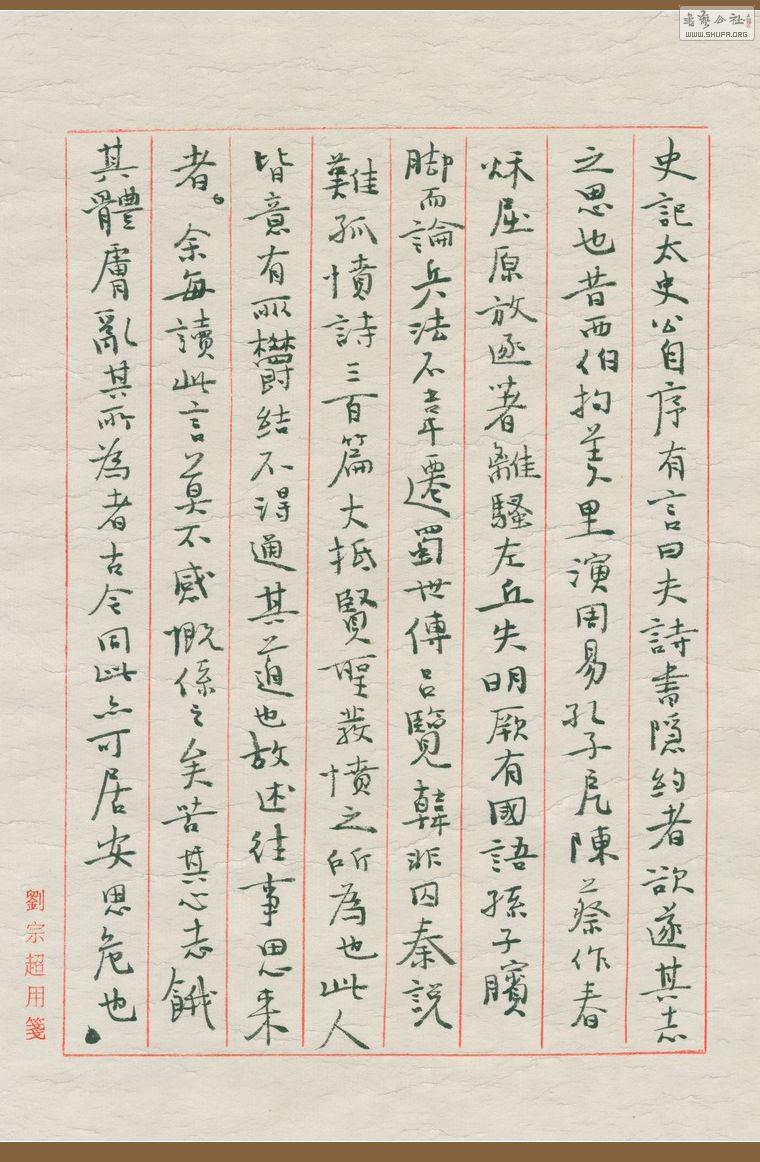 史記太史公自序有言曰夫詩書隱約者欲遂其志
之思也昔西伯拘羑里演周易孔子戹陳蔡作春
秌屈原放逐著離騷左丘失明厥有國語孫子臏
脚而論兵法不韋遷蜀世傳呂覽韓非囚秦說
難孤憤詩三百篇大抵賢聖發憤之所為也此人
皆意有所鬱結不得通其道也故述往事思来
者。余每讀此言莫不感慨係之矣苦其心志餓
其體膚亂其所為者古今同此亦可居安思危也
劉宗超用箋
書藝公社
WWW.SHUFA.ORG